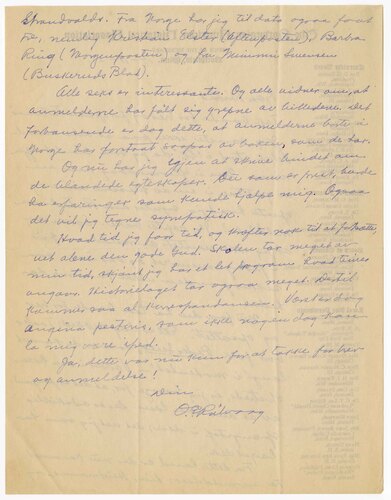 Strandvolds. Fra Norge har jeg til dato ogsaa faaet
tre, nemlig Kristian Elster (Aftenposten), Barbra
Ring (Morgenposten) og fru Mimmi Swensen
(Buskeruds Blad).
Alle seks er interessante. Og alle vidner om, at
anmelderne har følt sig grepne av billedene. Det
forbausende er dog dette, at anmelderne borte i
Norge har forstaat saapas av boken, som de har.
Og nu har jeg igjen at skrive bindet om
de blandede egteskaper. Du som er prest, burde
ha erfaringer som kunde hjelpe mig. Ogsaa
det vil jeg tegne sympatisk.
Hvad tid jeg faar tid, og kræfter nok til at fortsætte,
vet alene den gode Gud. Skolen tar meget av
min tid, skjønt jeg har et let program hvad timer
angaar. Historielaget tar ogsaa meget. Dertil
kommer saa al korrespondansen. Værst er dog
angina pectoris, som ikke nogen dag kan
la mig være ifred.
Ja, dette var nu kun for at takke for brev
og anmeldelse!
Din
O. E. Rølvaag